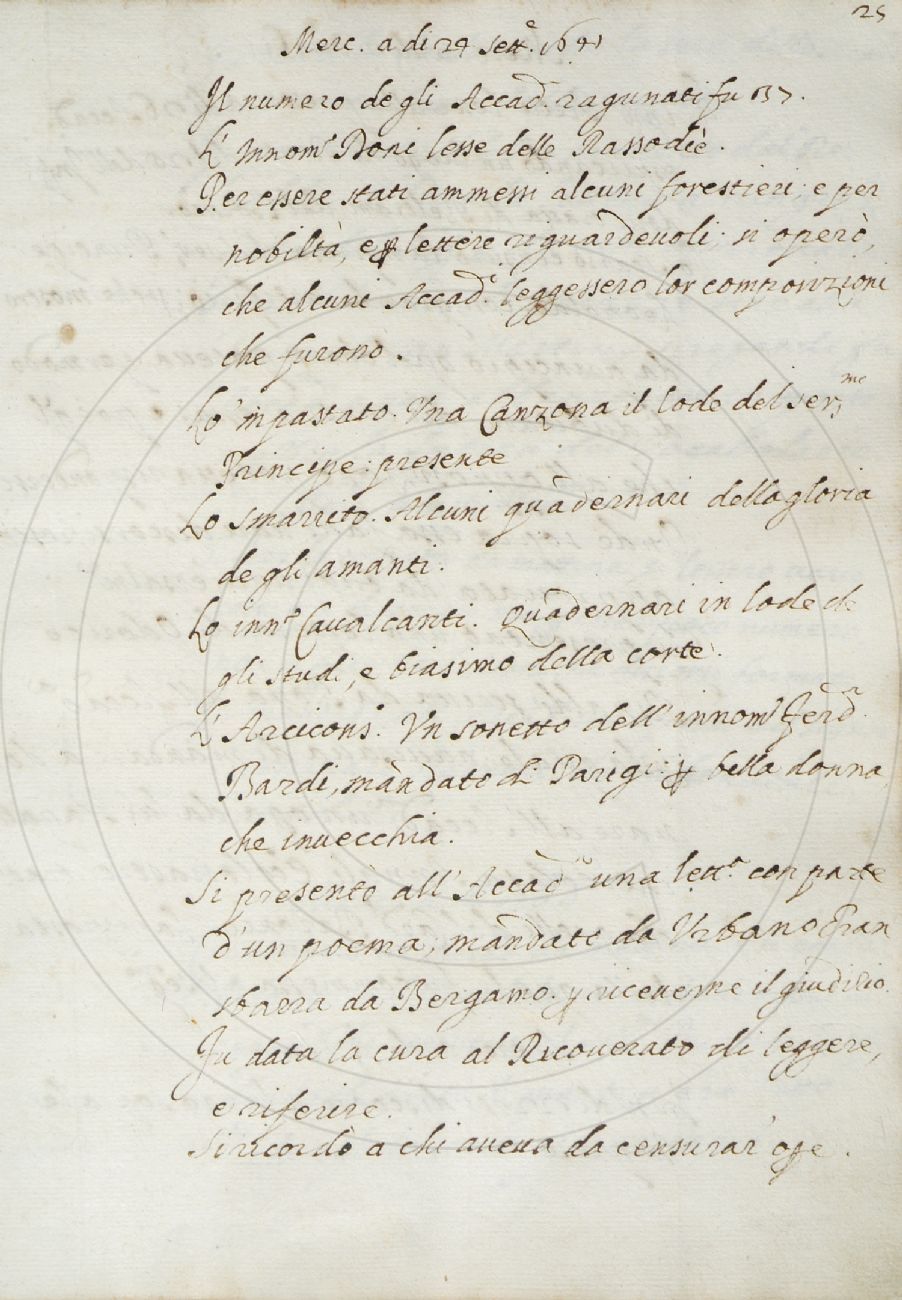 25
Merc. a di 24 Sett.e 1641
Il numero degli Accad.i ragunati fu 37.
L'Innom.o Doni lesse delle Rassodiè.
Per essere stati ammessi alcuni forestieri; e per
nobiltà, e ꝑ lettere riguardevoli; si operò,
che alcuni Accad.i leggessero lor composizioni
che furono.
Lo 'mpastato. Una Canzona il lode del Ser.mo
Principe: presente
Lo smarrito. Alcuni quadernari della gloria
degli amanti.
Lo inn.o Cavalcanti. Quadernari in lode de
gli studi, e biasimo della corte.
L'Arcicons.o Un sonetto dell'innom.o Ferd.o
Bardi, mandato di Parigi: ꝑ bella donna,
che invecchia.
Si presentò all'Accad.a una lett.a con parte
d'un poema; mandato da Urbano Fran
sbarra da Bergamo. ꝑ riceverne il giudizio.
Fu data la cura al Ricoverato di leggere,
e riferire.
Si ricordò a chi aveva da censurar' oꝑe.